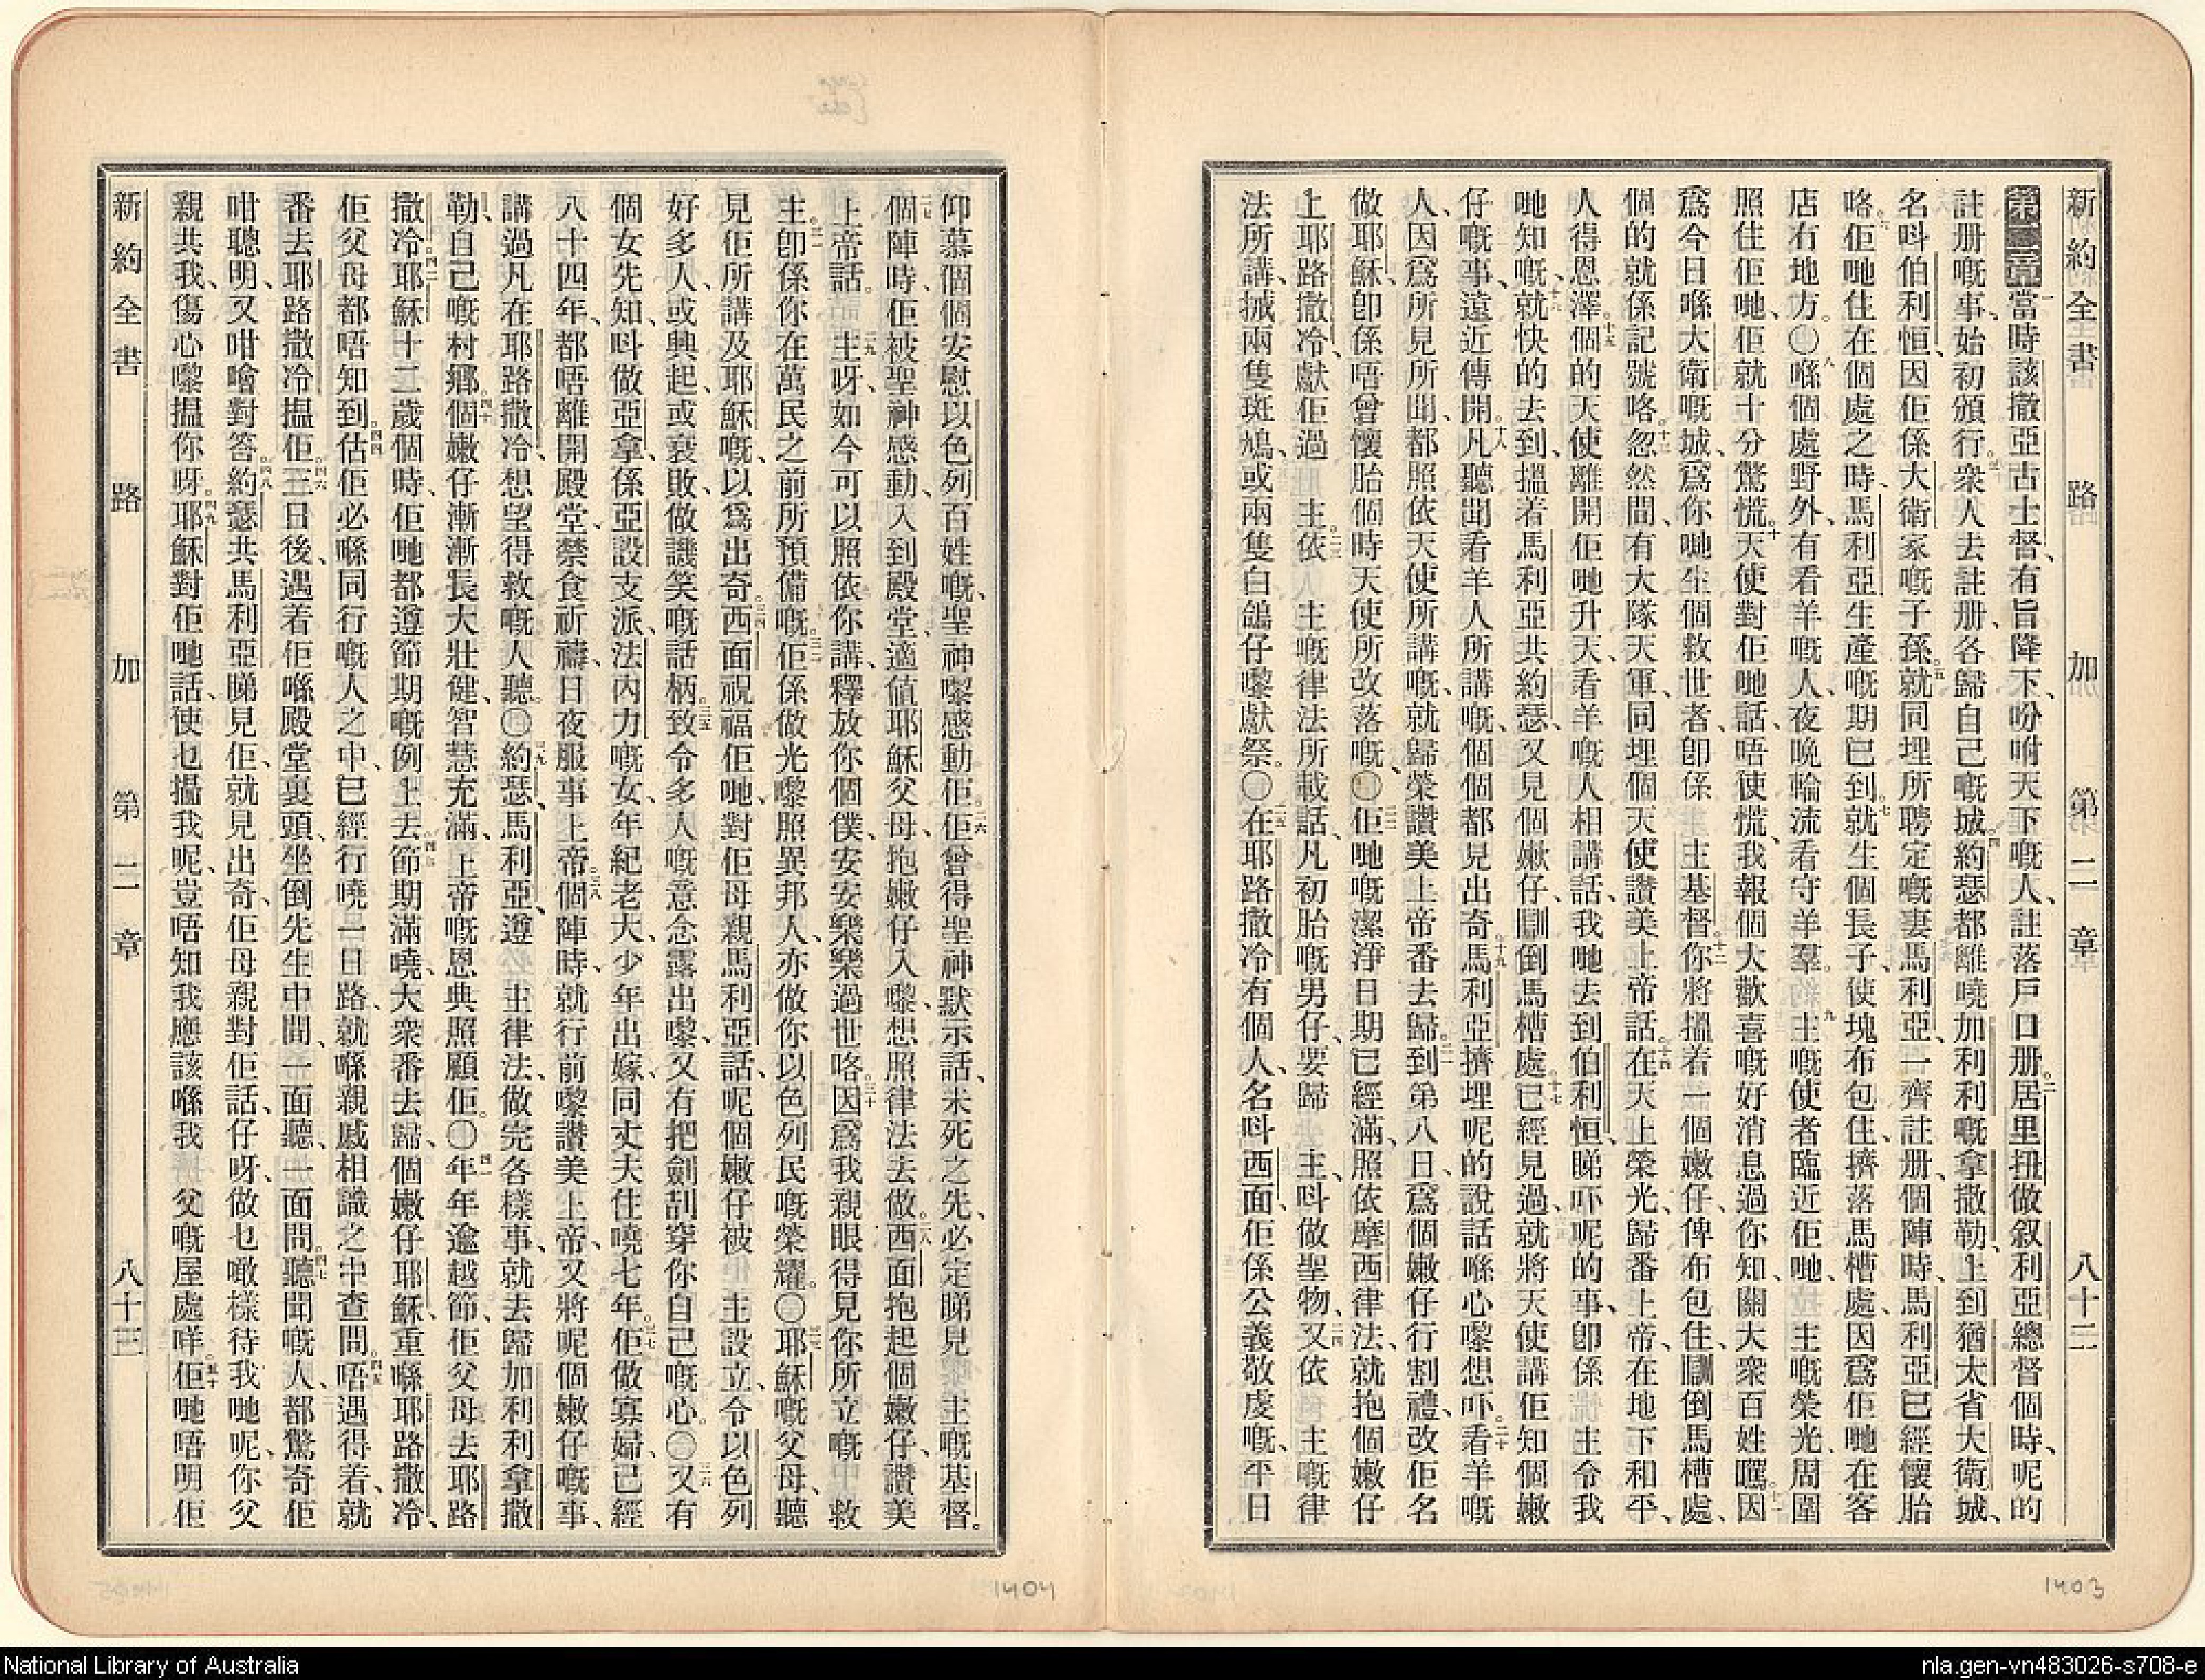 新約全書 路加 第二章 八十二
第二章 一當時該撒亞古士督、有旨降下、吩咐天下嘅人、註落戶口册。二居里扭做叙利亞總督個時、呢的
註册嘅事、始初頒行。三衆人去註册、各歸自己嘅城。四約瑟都離嘵加利利嘅拿撒勒、上到猶太省大衛城、
名呌伯利恒、因佢係大衛家嘅子孫。五就同埋所聘定嘅妻馬利亞、一齊註册、個陣時、馬利亞已經懷胎
咯。六佢哋住在個處之時、馬利亞生產嘅期已到。七就生個長子、使塊布包住、擠落馬槽處、因爲佢哋在客
店冇地方。〇八喺個處野外、有看羊嘅人、夜晚輪流看守羊羣。九主嘅使者臨近佢哋、主嘅榮光、周圍
照住佢哋、佢就十分驚慌。十天使對佢哋話、唔使慌、我報個大歡喜嘅好消息過你知、關大衆百姓嘅。十一因
爲今日喺大衛嘅城、爲你哋生個救世者、卽係 主基督。十二你將搵着一個嫩仔、俾布包住、瞓倒馬槽處、
個的就係記號咯。十三忽然間、有大隊天軍、同埋個天使讚美上帝話。十四在天上榮光、歸番上帝、在地下和平、
人得恩澤。十五個的天使離開佢哋升天、看羊嘅人相講話、我哋去到伯利恒、睇吓呢的事、卽係 主令我
哋知嘅、十六就快的去到、搵着馬利亞共約瑟、又見個嫩仔、瞓倒馬槽處。十七已經見過、就將天使講佢知個嫩
仔嘅事、遠近傳開。十八凡聽聞看羊人所講嘅、個個都見出奇。十九馬利亞擠埋呢的說話喺心嚟想吓。二十看羊嘅
人、因爲所見所聞、都照依天使所講嘅、就歸榮讚美上帝番去歸。二一到第八日、爲個嫩仔行割禮、改佢名
做耶穌、卽係唔曾懷胎個時天使所改落嘅。〇二二佢哋嘅潔淨日期已經滿、照依摩西律法、就抱個嫩仔
上耶路撒冷、獻佢過 主。二三依 主嘅律法所載話、凡初胎嘅男仔、要歸 主、呌做聖物、二四又依 主嘅律
法所講、捉兩隻斑鳩、或兩隻白鴿仔嚟獻祭。〇二五在耶路撒冷有個人、名呌西面、佢係公義敬虔嘅、平日
仰慕個個安慰以色列百姓嘅、聖神嚟感動佢。二六佢曾得聖神默示話、未死之先、必定睇見 主嘅基督。
二七個陣時、佢被聖神感動、入到殿堂、適值耶穌父母、抱嫩仔入嚟、想照律法去做。二八西面抱起個嫩仔、讚美
上帝話。二九主呀、如今可以照依你講、釋放你個僕、安安樂樂過世咯。三十因爲我親眼得見你所立嘅 救
主。三一卽係你在萬民之前所預備嘅。三二佢係做光嚟照異邦人、亦做你以色列民嘅榮耀。〇三三耶穌嘅父母、聽
見佢所講及耶穌嘅、以爲出奇。三四西面祝福佢哋、對佢母親馬利亞話、呢個嫩仔被 主設立、令以色列
好多人、或興起、或衰敗、做譏笑嘅話柄。三五致令多人嘅意念露出嚟、又有把劍刮穿你自己嘅心。〇三六又有
個女先知、呌做亞拿、係亞設支派、法內力嘅女、年紀老大、少年出嫁、同丈夫住嘵七年。三七佢做寡婦、已經
八十四年、都唔離開殿堂、禁食祈禱、日夜服事上帝。三八個陣時、就行前嚟讚美上帝、又將呢個嫩仔嘅事、
講過凡在耶路撒冷、想望得救嘅人聽。〇三九約瑟、馬利亞、遵 主律法、做完各樣事、就去歸加利利拿撒
勒、自己嘅村鄉。四十個嫩仔漸漸長大壯健、智慧充滿、上帝嘅恩典照顧佢。〇四一年年逾越節、佢父母去耶路
撒冷。四二耶穌十二歲個時、佢哋都遵節期嘅例上去。四三節期滿嘵、大衆番去歸、個嫩仔耶穌、重喺耶路撒冷、
佢父母都唔知到。四四估佢必喺同行嘅人之中、已經行嘵一日路、就喺親戚相識之中查問。四五唔遇得着、就
番去耶路撒冷搵佢。四六三日後、遇着佢喺殿堂裏頭、坐倒先生中間、一面聽、一面問。四七聽聞嘅人、都驚奇佢
咁聰明、又咁噲對答。四八約瑟共馬利亞睇見佢、就見出奇、佢母親對佢話、仔呀、做乜噉樣待我哋呢、你父
親共我、傷心嚟搵你呀。四九耶穌對佢哋話、使乜搵我呢、豈唔知我應該喺我 父嘅屋處咩。五十佢哋唔明佢
新約全書 路加 第二章 八十三
1403
1404
National Library of Australia
nla.gen-vn483026-s708-e